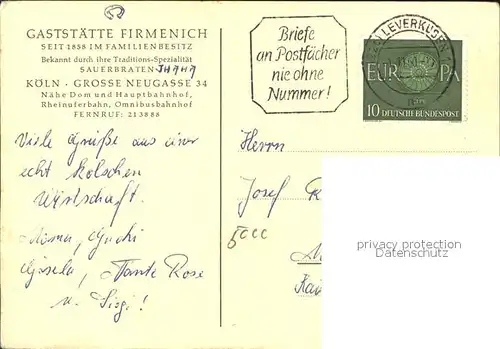 GASTSTÄTTE FIRMENICH
SEIT 1858 IM FAMILIENBESITZ
Bekannt durch ihre Traditions-Spezialität
SAUERBRATEN
KÖLN · GROSSE NEUGASSE 34
Nähe Dom und Hauptbahnhof,
Rheinuferbahn, Omnibusbahnhof
FERNRUF: 213888
Viele Grüße aus einer
echt kölschen
Wirtschaft.
Gisela, Tante Rose
u. Sigi!
Briefe
an Postfächer
nie ohne
Nummer!
LEVERKUSEN
EUROPA
10 DEUTSCHE BUNDESPOST
Herrn
Josef
privacy protection
Datenschutz